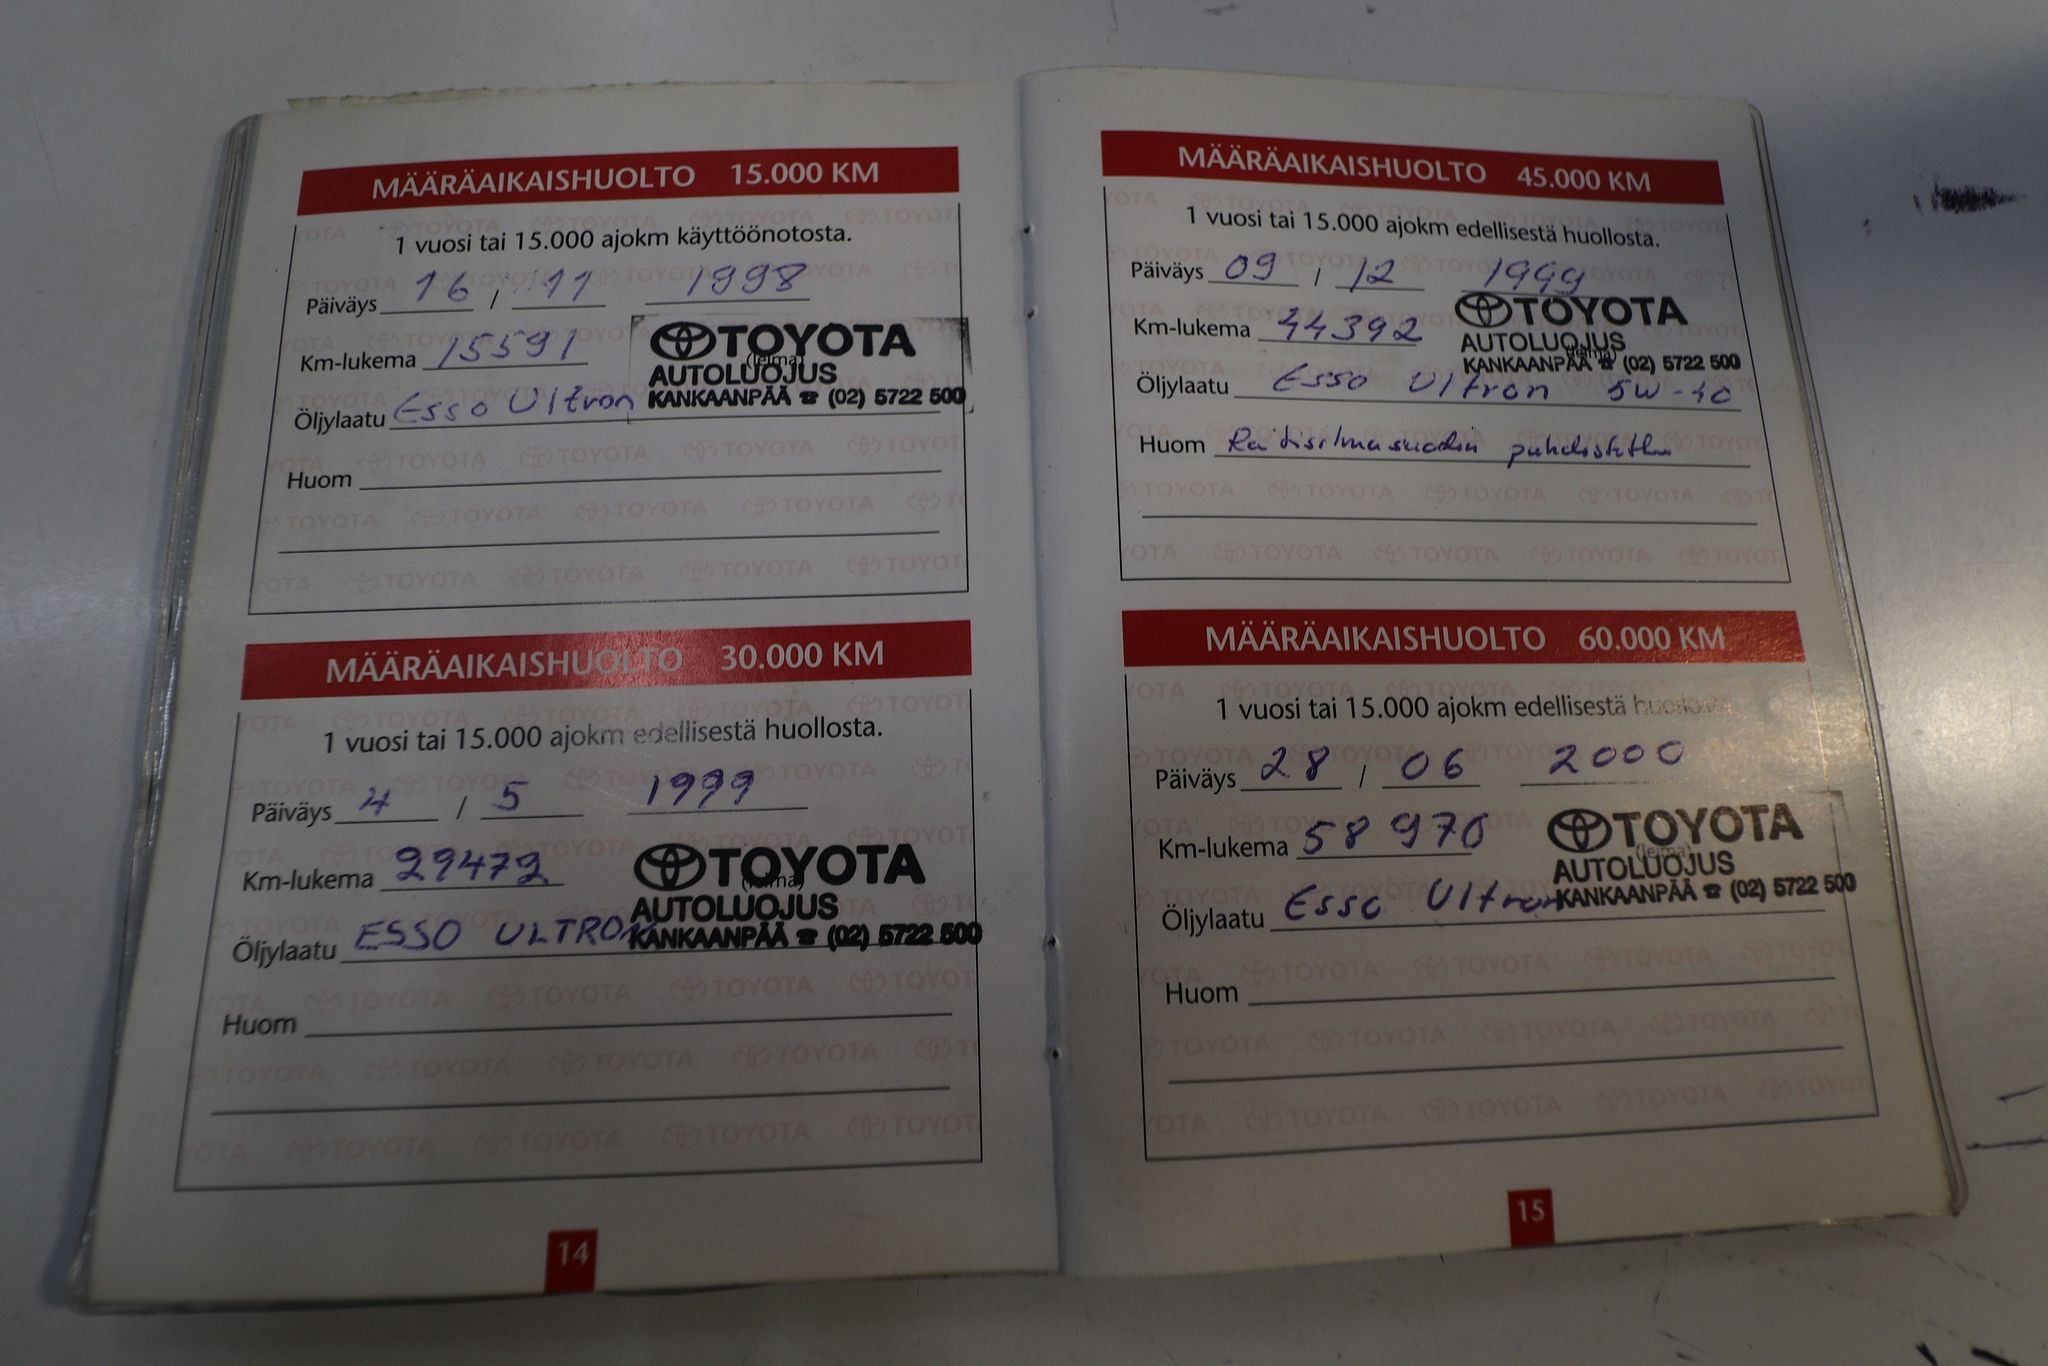 MÄÄRÄAIKAISHUOLTO 15.000 KM
1 vuosi tai 15.000 ajokm käyttöönotosta.
Päiväys 16 / 11 1998
Km-lukema 15591
(leima)
TOYOTA
AUTOLUOJUS
KANKAANPÄÄ ☎ (02) 5722 500
Öljylaatu Esso Ultron
Huom
MÄÄRÄAIKAISHUOLTO 30.000 KM
1 vuosi tai 15.000 ajokm edellisestä huollosta.
Päiväys 4 / 5 1999
Km-lukema 29472
(leima)
TOYOTA
AUTOLUOJUS
KANKAANPÄÄ ☎ (02) 5722 500
Öljylaatu ESSO ULTRON
Huom
14
MÄÄRÄAIKAISHUOLTO 45.000 KM
1 vuosi tai 15.000 ajokm edellisestä huollosta.
Päiväys 09 / 12 1999
Km-lukema 44392
(leima)
TOYOTA
AUTOLUOJUS
KANKAANPÄÄ ☎ (02) 5722 500
Öljylaatu Esso Ultron 5W-40
Huom Raitisilmasuodin puhdistettu
MÄÄRÄAIKAISHUOLTO 60.000 KM
1 vuosi tai 15.000 ajokm edellisestä huollosta.
Päiväys 28 / 06 2000
Km-lukema 58970
(leima)
TOYOTA
AUTOLUOJUS
KANKAANPÄÄ ☎ (02) 5722 500
Öljylaatu Esso Ultron
Huom
15